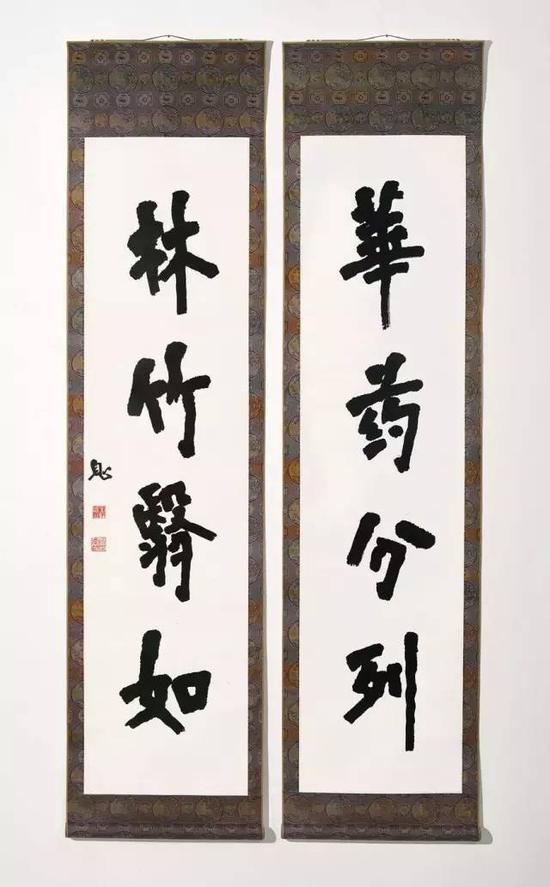 華药分列
林竹翳如